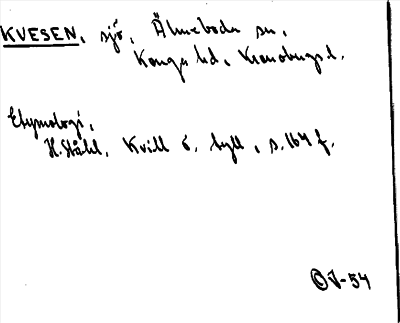 KVESEN, sjö, Älmeboda sn,
Konga hd, Kronobergs l.
Etymologi,
H. Ståhl, Kvill o. tyll, s. 164 f.
ⒸV-54